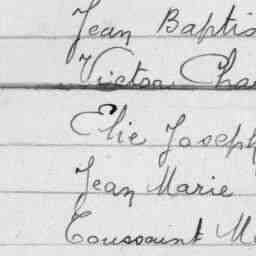 Jean Baptis
Victor Cha
Elie Joseph
Jean Marie
Toussaint M